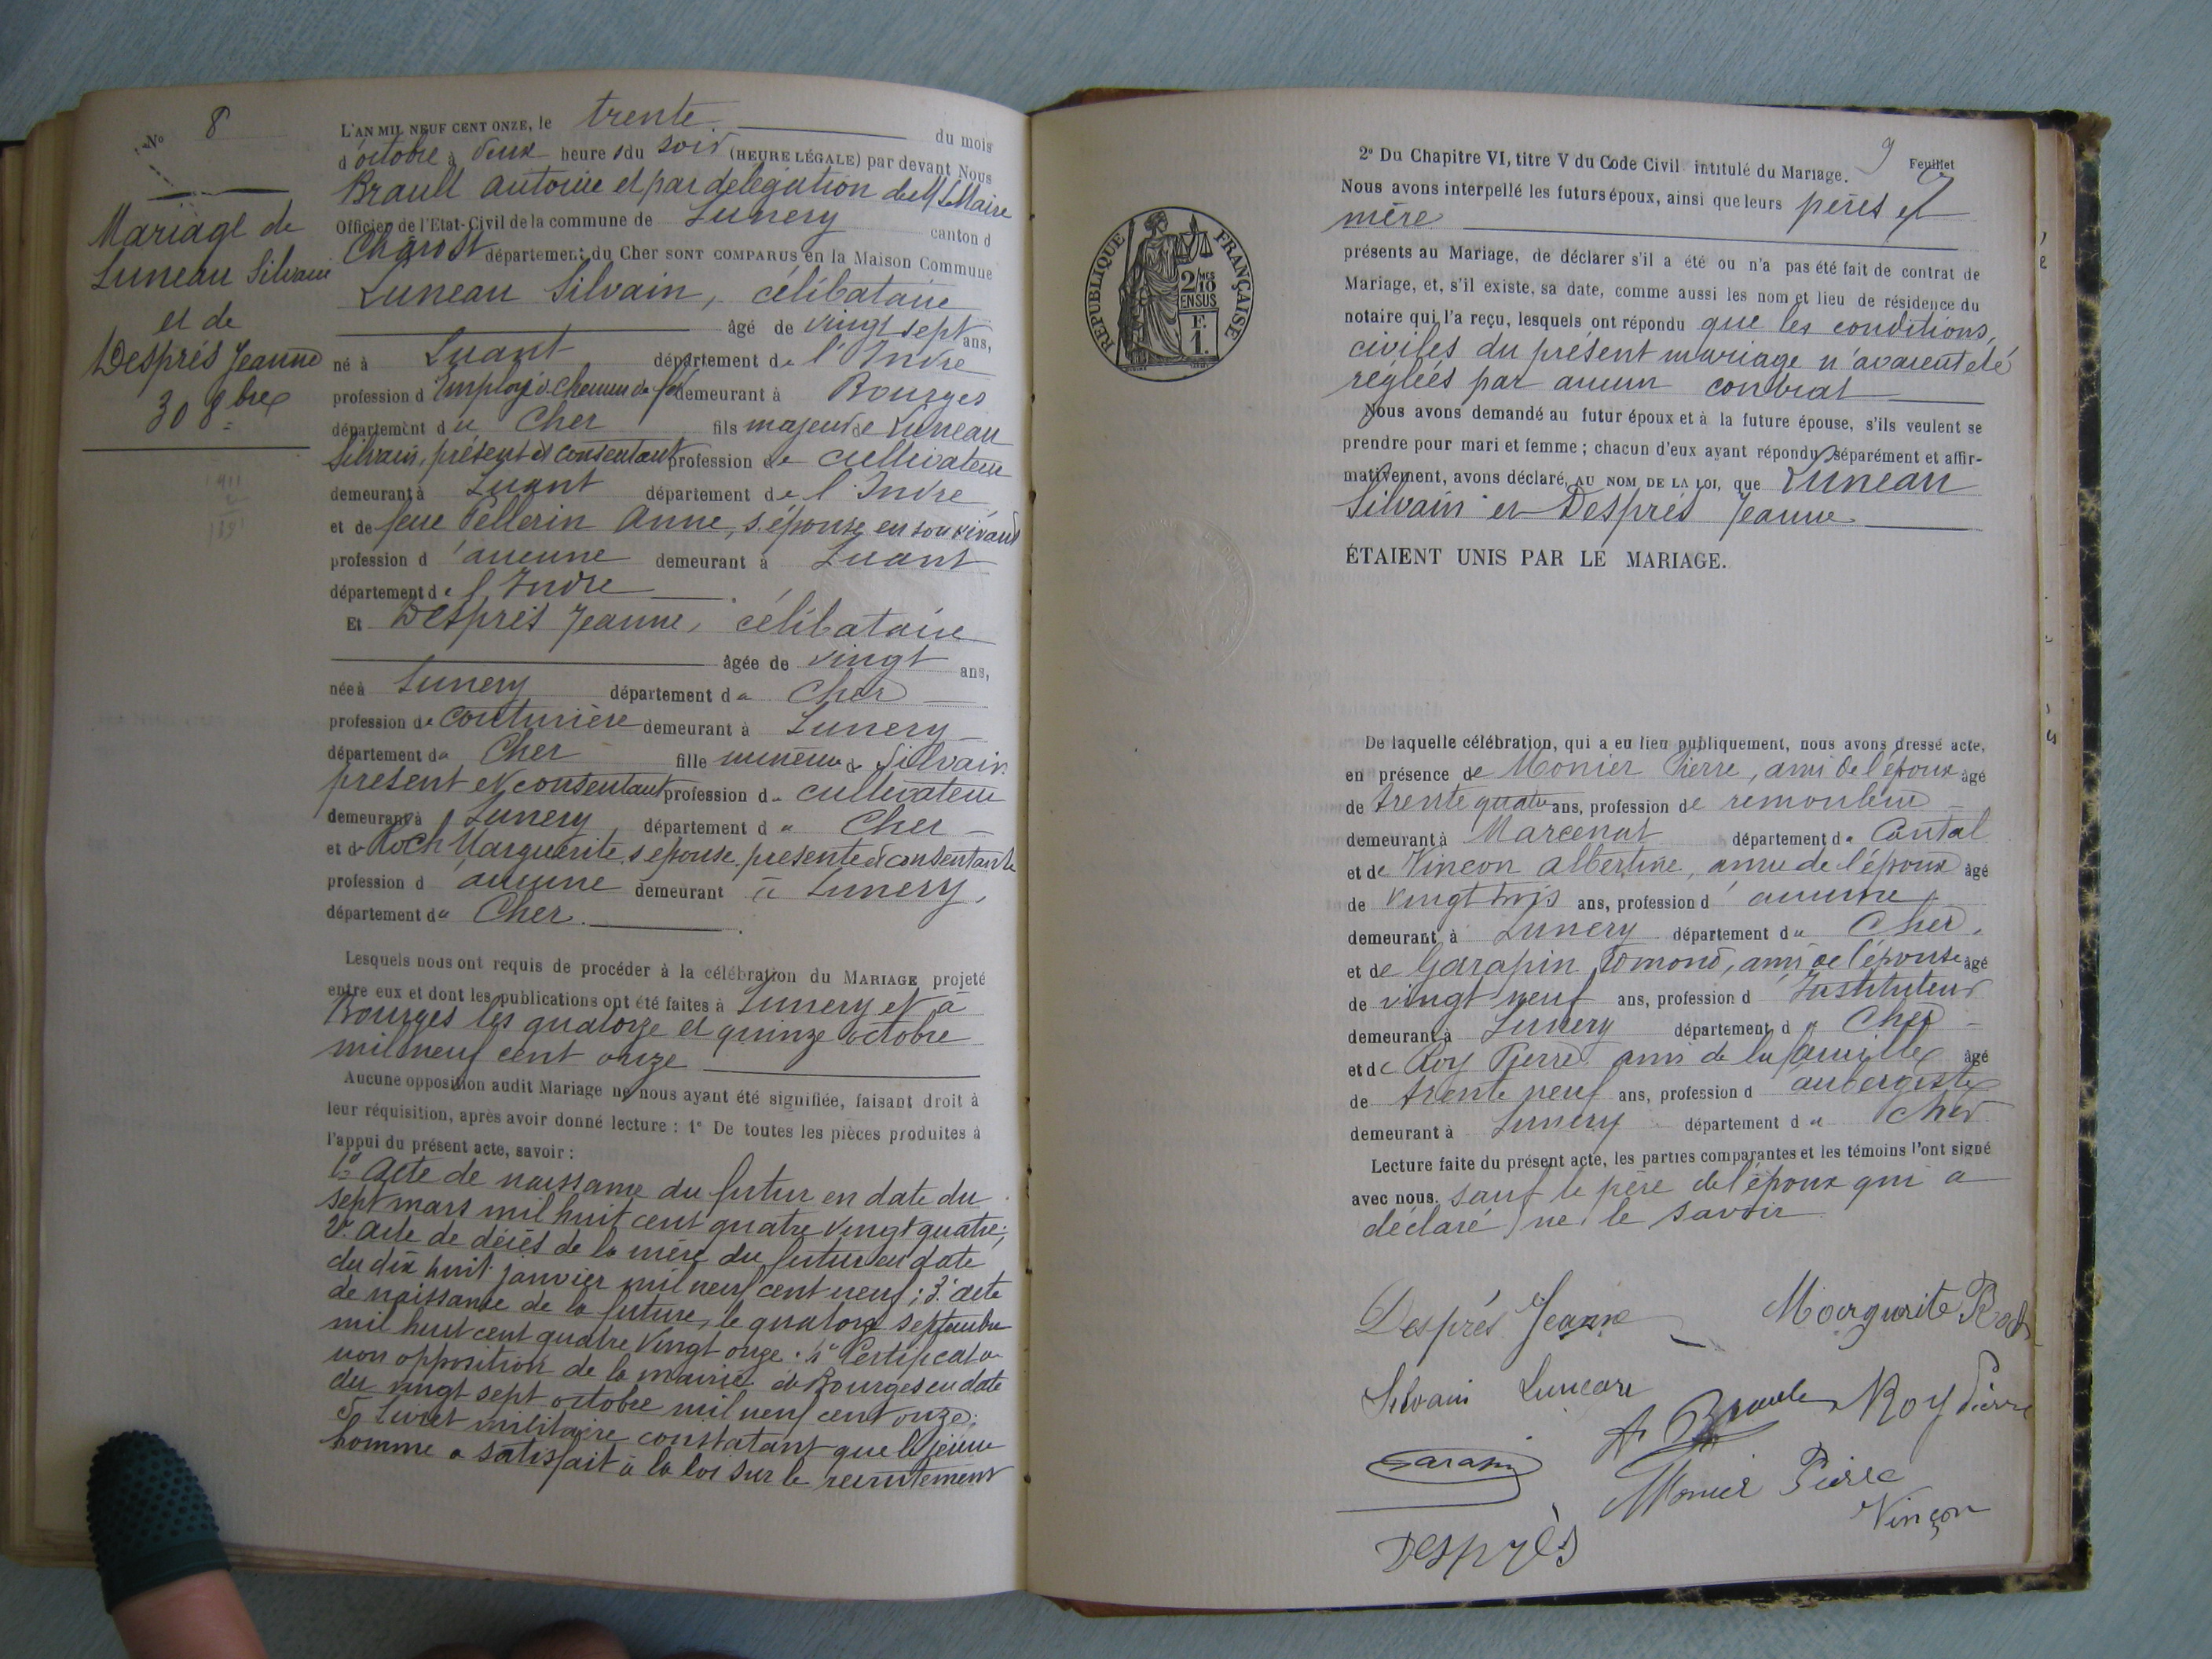 N° 8
Mariage de
Luneau Silvain
et de
Després Jeanne
30 8bre
1911
1891
L'AN MIL NEUF CENT ONZE, le trente du mois
d'octobre à deux heures du soir (HEURE LÉGALE) par devant Nous
Brault Antoine et par délégation de M. le Maire
Officier de l'Etat-Civil de la commune de Lunery canton d
Chârost département du Cher SONT COMPARUS en la Maison Commune
Luneau Silvain, célibataire
âgé de vingt sept ans,
né à Luant département de l'Indre
profession d'Employé de Chemin de fer demeurant à Bourges
département du Cher fils majeur de Luneau
Silvain, présent et consentant profession de cultivateur
demeurant à Luant département de l'Indre
et de feue Pellerin Anne, s. épouse en son vivant
profession d'aucune demeurant à Luant
département de l'Indre
Et Després Jeanne, célibataire
âgée de vingt ans,
née à Lunery département du Cher
profession de couturière demeurant à Lunery
département du Cher fille mineure de Silvain
présent et consentant profession de cultivateur
demeurant à Lunery département du Cher
et de Roch Marguerite s. épouse présente et consentante
profession d'aucune demeurant à Lunery,
département du Cher.
Lesquels nous ont requis de procéder à la célébration du MARIAGE projeté
entre eux et dont les publications ont été faites à Lunery et à
Bourges les quatorze et quinze octobre
mil neuf cent onze
Aucune opposition audit Mariage ne nous ayant été signifiée, faisant droit à
leur réquisition, après avoir donné lecture : 1° De toutes les pièces produites à
l'appui du présent acte, savoir :
1° Acte de naissance du futur en date du
sept mars mil huit cent quatre vingt quatre;
2° acte de décès de la mère du futur en date
du dix huit janvier mil neuf cent neuf; 3° acte
de naissance de la future, le quatorze septembre
mil huit cent quatre vingt onze. 4° Certificat de
non opposition de la mairie de Bourges en date
du vingt sept octobre mil neuf cent onze;
5° Livret militaire constatant que le jeune
homme a satisfait à la loi sur le recrutement
REPUBLIQUE FRANÇAISE
2/10 MES
EN SUS
F.
1.
9 Feuillet
2° Du Chapitre VI, titre V du Code Civil intitulé du Mariage.
Nous avons interpellé les futurs époux, ainsi que leurs pères et
mère
présents au Mariage, de déclarer s'il a été ou n'a pas été fait de contrat de
Mariage, et, s'il existe, sa date, comme aussi les nom et lieu de résidence du
notaire qui l'a reçu, lesquels ont répondu que les conditions
civiles du présent mariage n'avaient été
réglées par aucun contrat
Nous avons demandé au futur époux et à la future épouse, s'ils veulent se
prendre pour mari et femme ; chacun d'eux ayant répondu séparément et affir-
mativement, avons déclaré, AU NOM DE LA LOI, que Luneau
Silvain et Després Jeanne
ÉTAIENT UNIS PAR LE MARIAGE.
De laquelle célébration, qui a eu lieu publiquement, nous avons dressé acte,
en présence de Monier Pierre, ami de l'époux âgé
de trente quatre ans, profession de remouleur
demeurant à Marcenat département du Cantal
et de Vinçon Albertine, amie de l'époux âgé
de vingt trois ans, profession d'aucune
demeurant à Lunery département du Cher.
et de Garapin Edmond, ami de l'épouse âgé
de vingt neuf ans, profession d'Instituteur
demeurant à Lunery département du Cher
et de Roy Pierre ami de la famille âgé
de trente neuf ans, profession d'aubergiste
demeurant à Lunery département du Cher
Lecture faite du présent acte, les parties comparantes et les témoins l'ont signé
avec nous. sauf le père de l'époux qui a
déclaré ne le savoir
Després Jeanne Marguerite Roch
Silvain Luneau A Brault Roy Pierre
Garapin Monier Pierre
Vinçon
Desprès